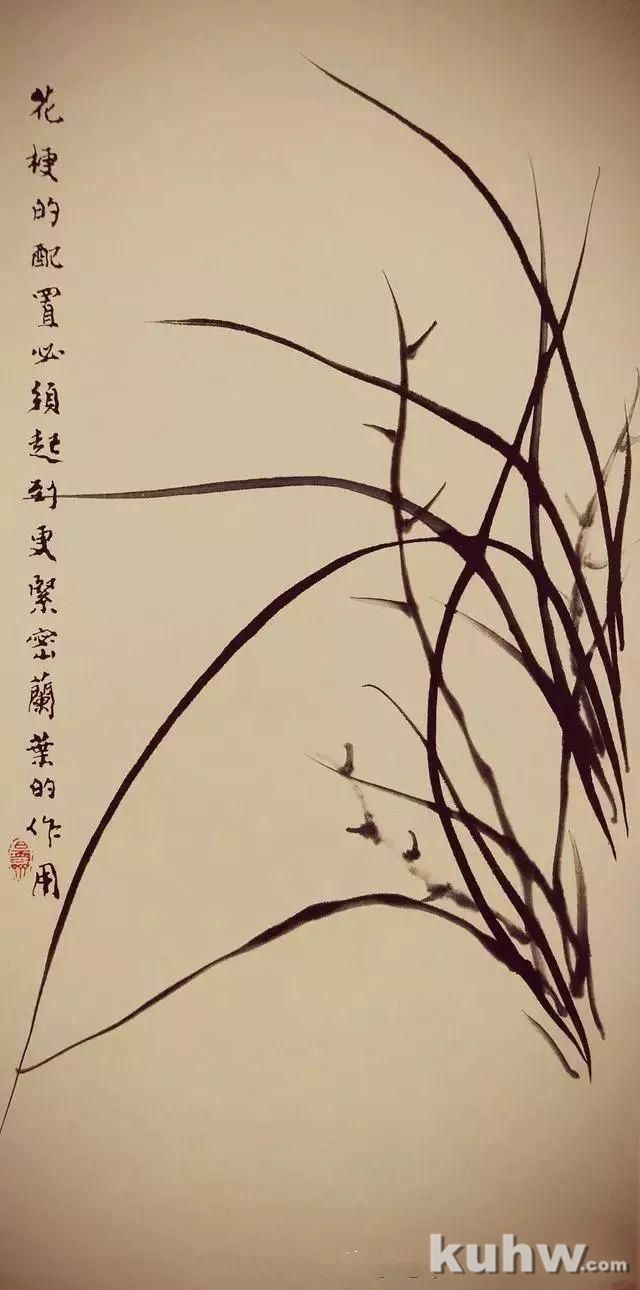 花梗的配置必須起到更緊密蘭葉的作用
kuhw.com